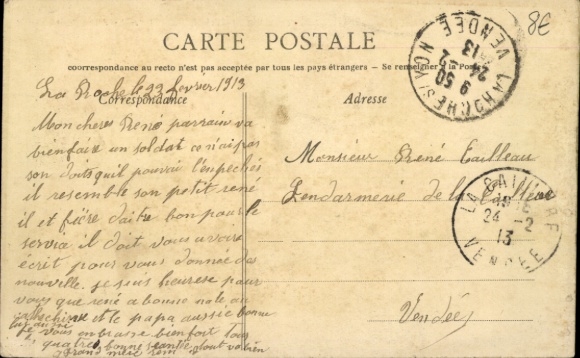 8€
CARTE POSTALE
correspondance au recto n'est pas acceptée par tous les pays étrangers — Se renseigner à la Poste
LA ROCHE-S-YON
9 50
24 -2
13
VENDÉE
La Roche le 23 fevrier 1913
Correspondance
Mon cher René parrain va
bien faire un soldat ce n'ai pas
son doits qui pourrai l'empeché
il resemble son petit rené
il et fière d'aitre bon pour le
service il doit vous avoire
écrit pour vous donnée des
nouvelle je suis heurese pour
vous que rené a bonne note au
et le papa aussie bonne
je vous enbrasse bienfort tous
quatres bonne seantée tout va bien
grand mère
Adresse
Monsieur René Tailleau
Gendarmerie de la Caillère
Vendée
LA CAILLERE
24 -2
13
VENDEE